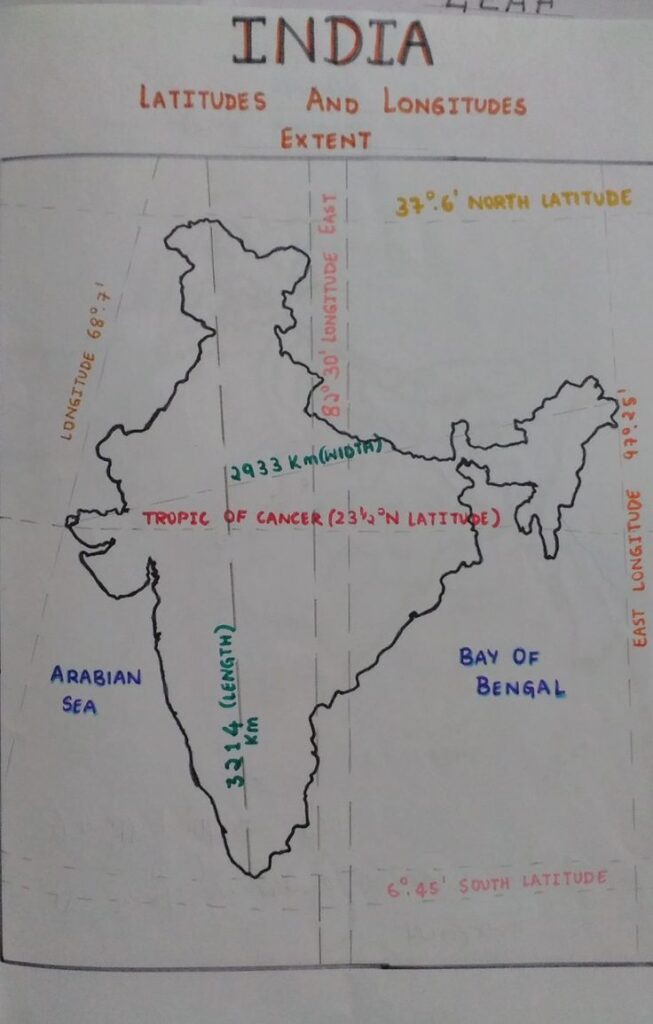 INDIA
LATITUDES AND LONGITUDES
EXTENT
37°.6' NORTH LATITUDE
82° 30' LONGITUDE EAST
LONGITUDE 68°.7'
EAST LONGITUDE 97°.25'
2933 Km (WIDTH)
TROPIC OF CANCER (23½°N LATITUDE)
3214 (LENGTH)
Km
ARABIAN
SEA
BAY OF
BENGAL
6°.45' SOUTH LATITUDE